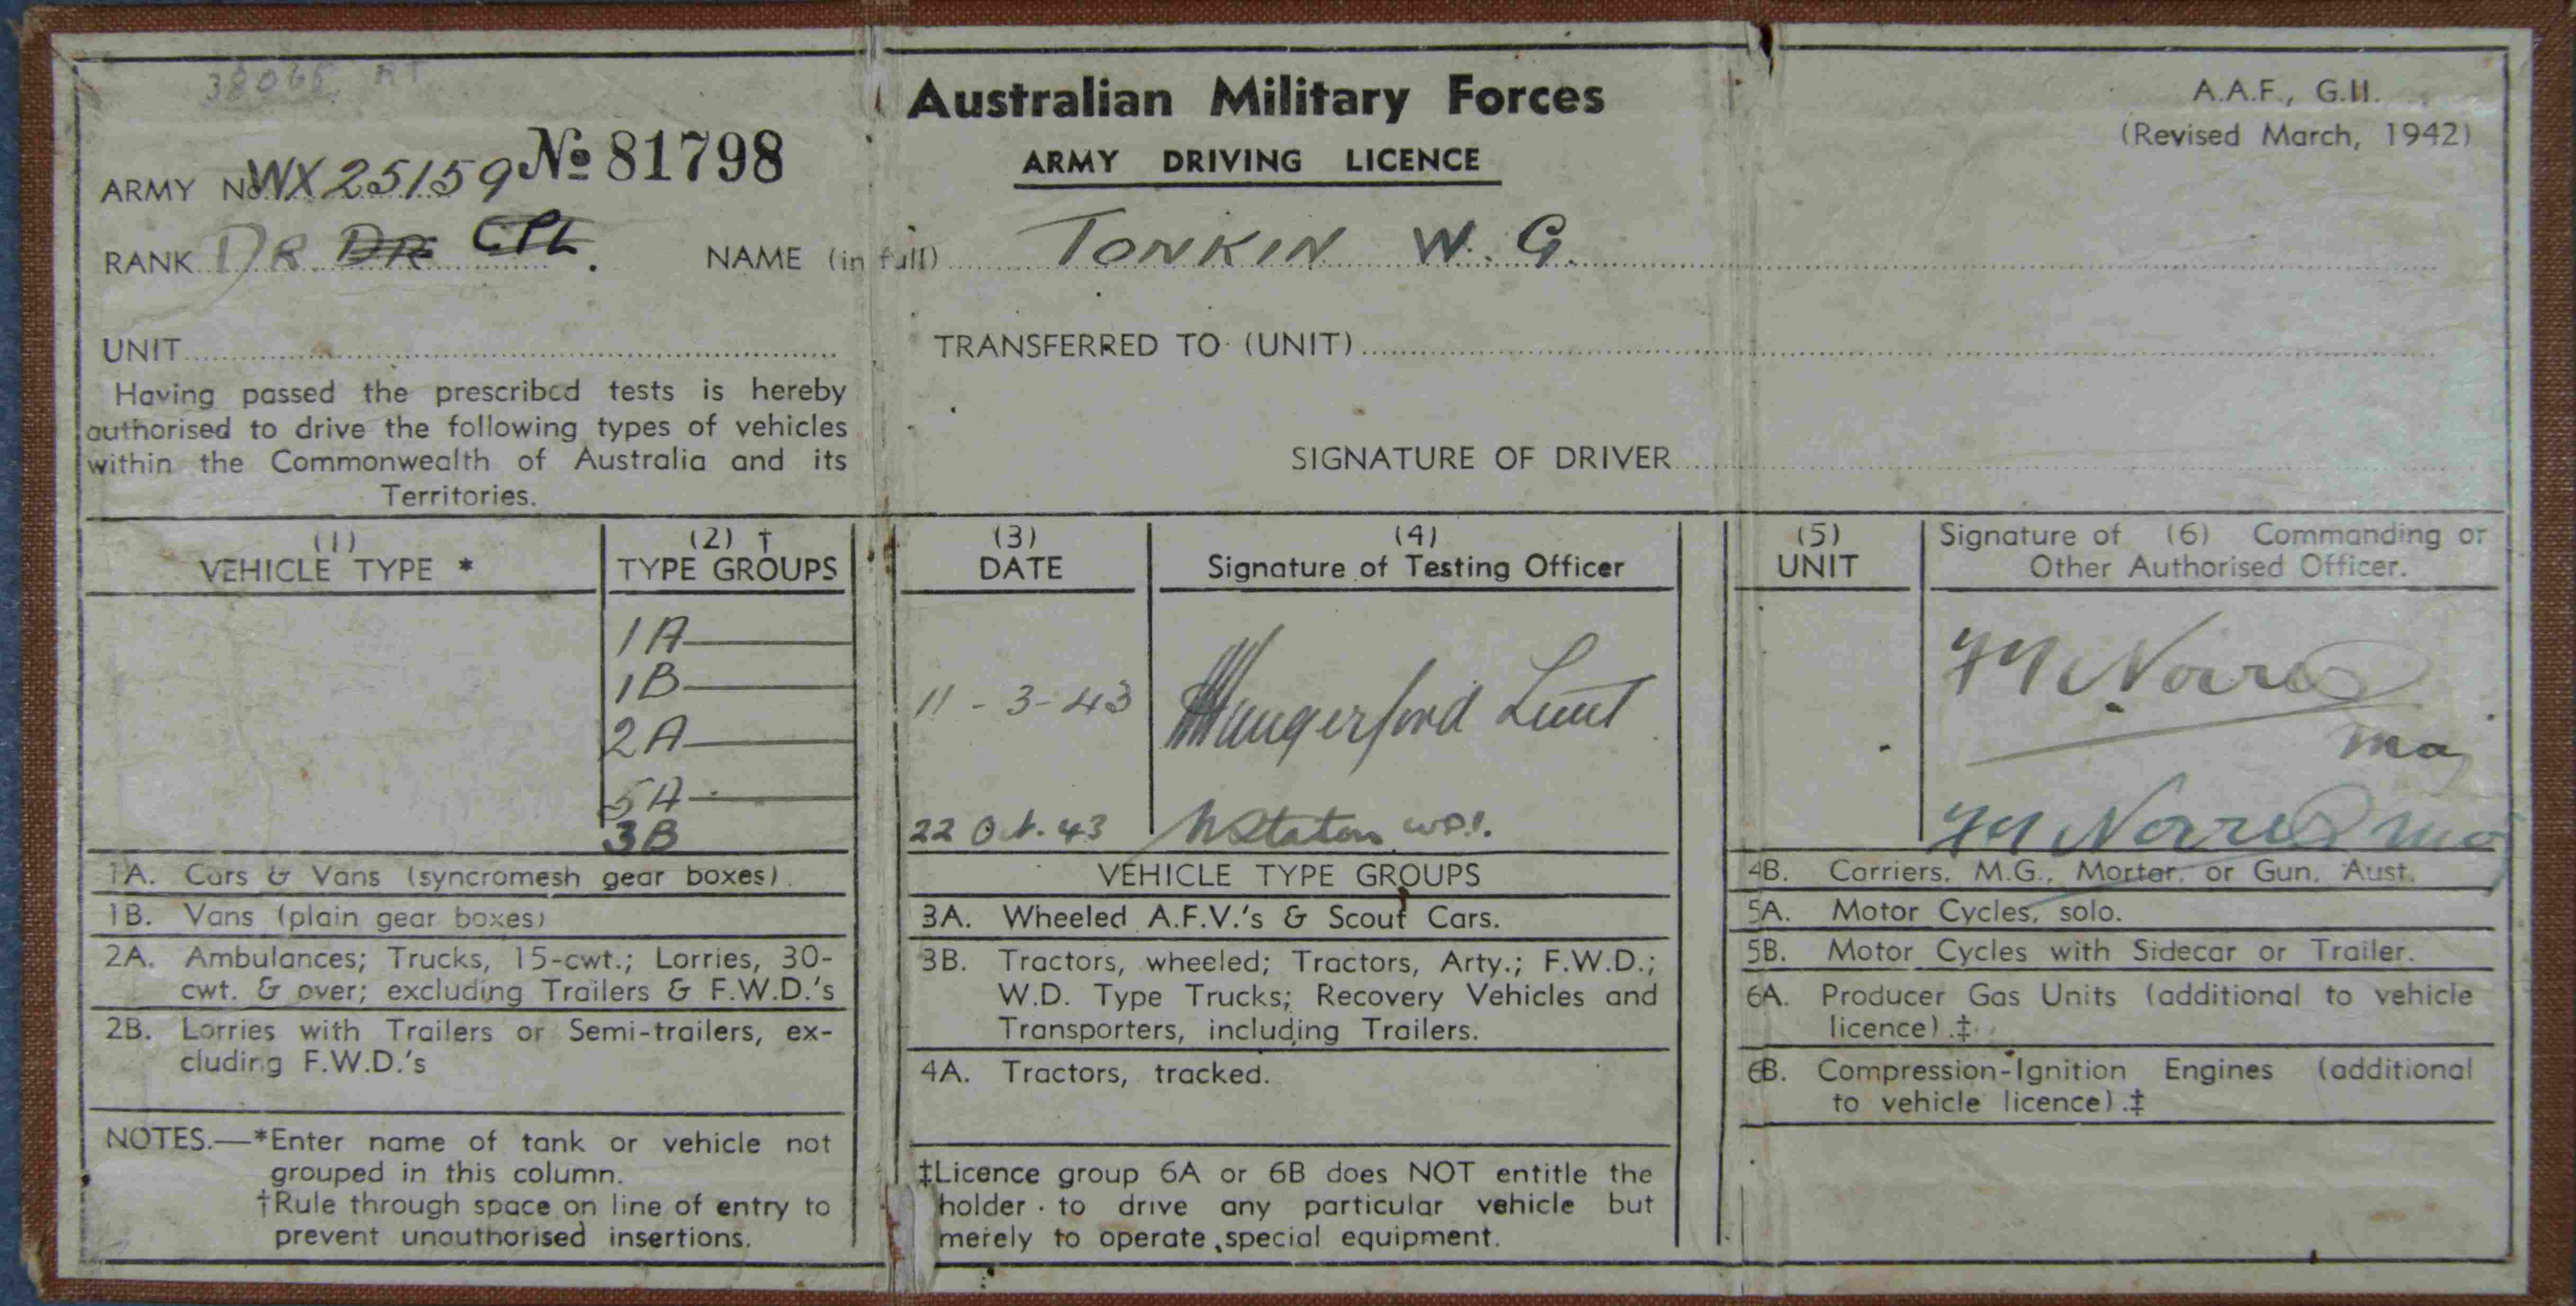 38065 RT
Australian Military Forces
ARMY DRIVING LICENCE
A.A.F., G.11.
(Revised March, 1942)
ARMY No. WX25159 No 81798
RANK DR DR CPL. NAME (in full) TONKIN W. G.
UNIT
TRANSFERRED TO (UNIT)
Having passed the prescribed tests is hereby
authorised to drive the following types of vehicles
within the Commonwealth of Australia and its
Territories.
SIGNATURE OF DRIVER
(1)
VEHICLE TYPE *
(2) †
TYPE GROUPS
1A
1B
2A
5A
3B
(3)
DATE
11-3-43
22 Oct. 43
(4)
Signature of Testing Officer
Hungerford Lieut
(5)
UNIT
Signature of (6) Commanding or
Other Authorised Officer.
Norris
Maj
Norris Maj
1A. Cars & Vans (syncromesh gear boxes)
1B. Vans (plain gear boxes)
2A. Ambulances; Trucks, 15-cwt.; Lorries, 30-
cwt. & over; excluding Trailers & F.W.D.'s
2B. Lorries with Trailers or Semi-trailers, ex-
cluding F.W.D.'s
NOTES.—*Enter name of tank or vehicle not
grouped in this column.
†Rule through space on line of entry to
prevent unauthorised insertions.
VEHICLE TYPE GROUPS
3A. Wheeled A.F.V.'s & Scout Cars.
3B. Tractors, wheeled; Tractors, Arty.; F.W.D.;
W.D. Type Trucks; Recovery Vehicles and
Transporters, including Trailers.
4A. Tractors, tracked.
‡Licence group 6A or 6B does NOT entitle the
holder to drive any particular vehicle but
merely to operate special equipment.
4B. Carriers, M.G., Mortar, or Gun, Aust.
5A. Motor Cycles, solo.
5B. Motor Cycles with Sidecar or Trailer.
6A. Producer Gas Units (additional to vehicle
licence).‡
6B. Compression-Ignition Engines (additional
to vehicle licence).‡